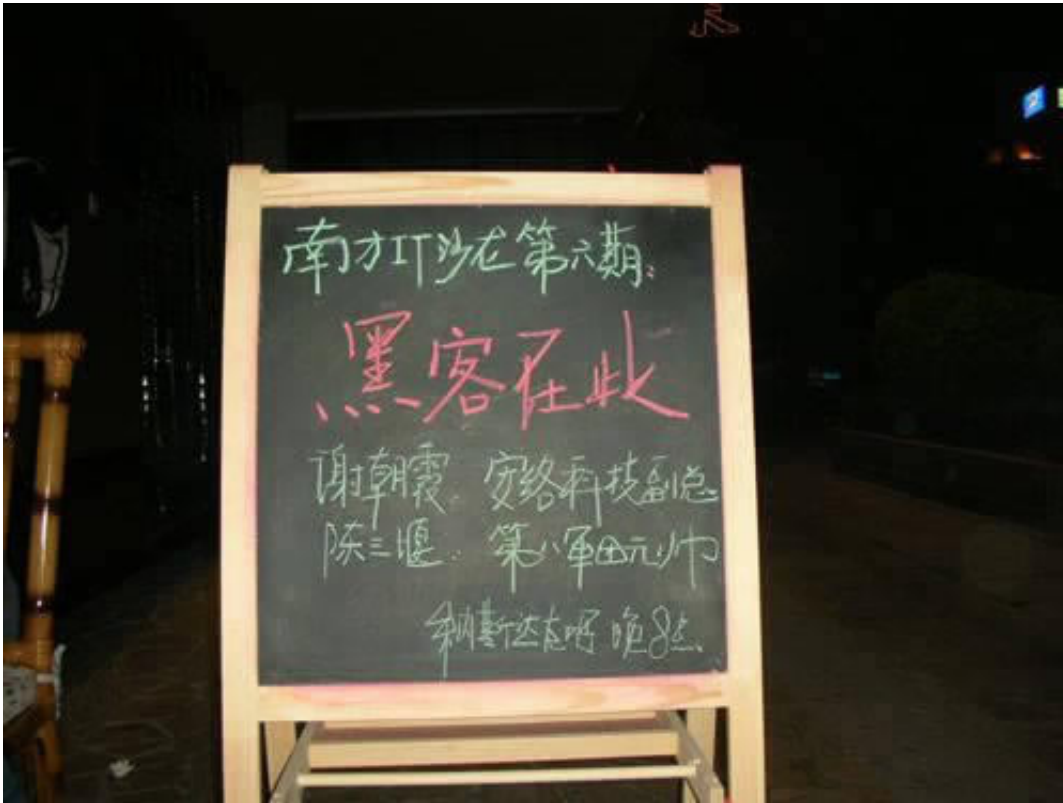 南方IT沙龙第六期:
黑客在此
谢朝霞: 安络科技副总
陈三堰: 第八军团元帅
纳斯达克吧 晚8点